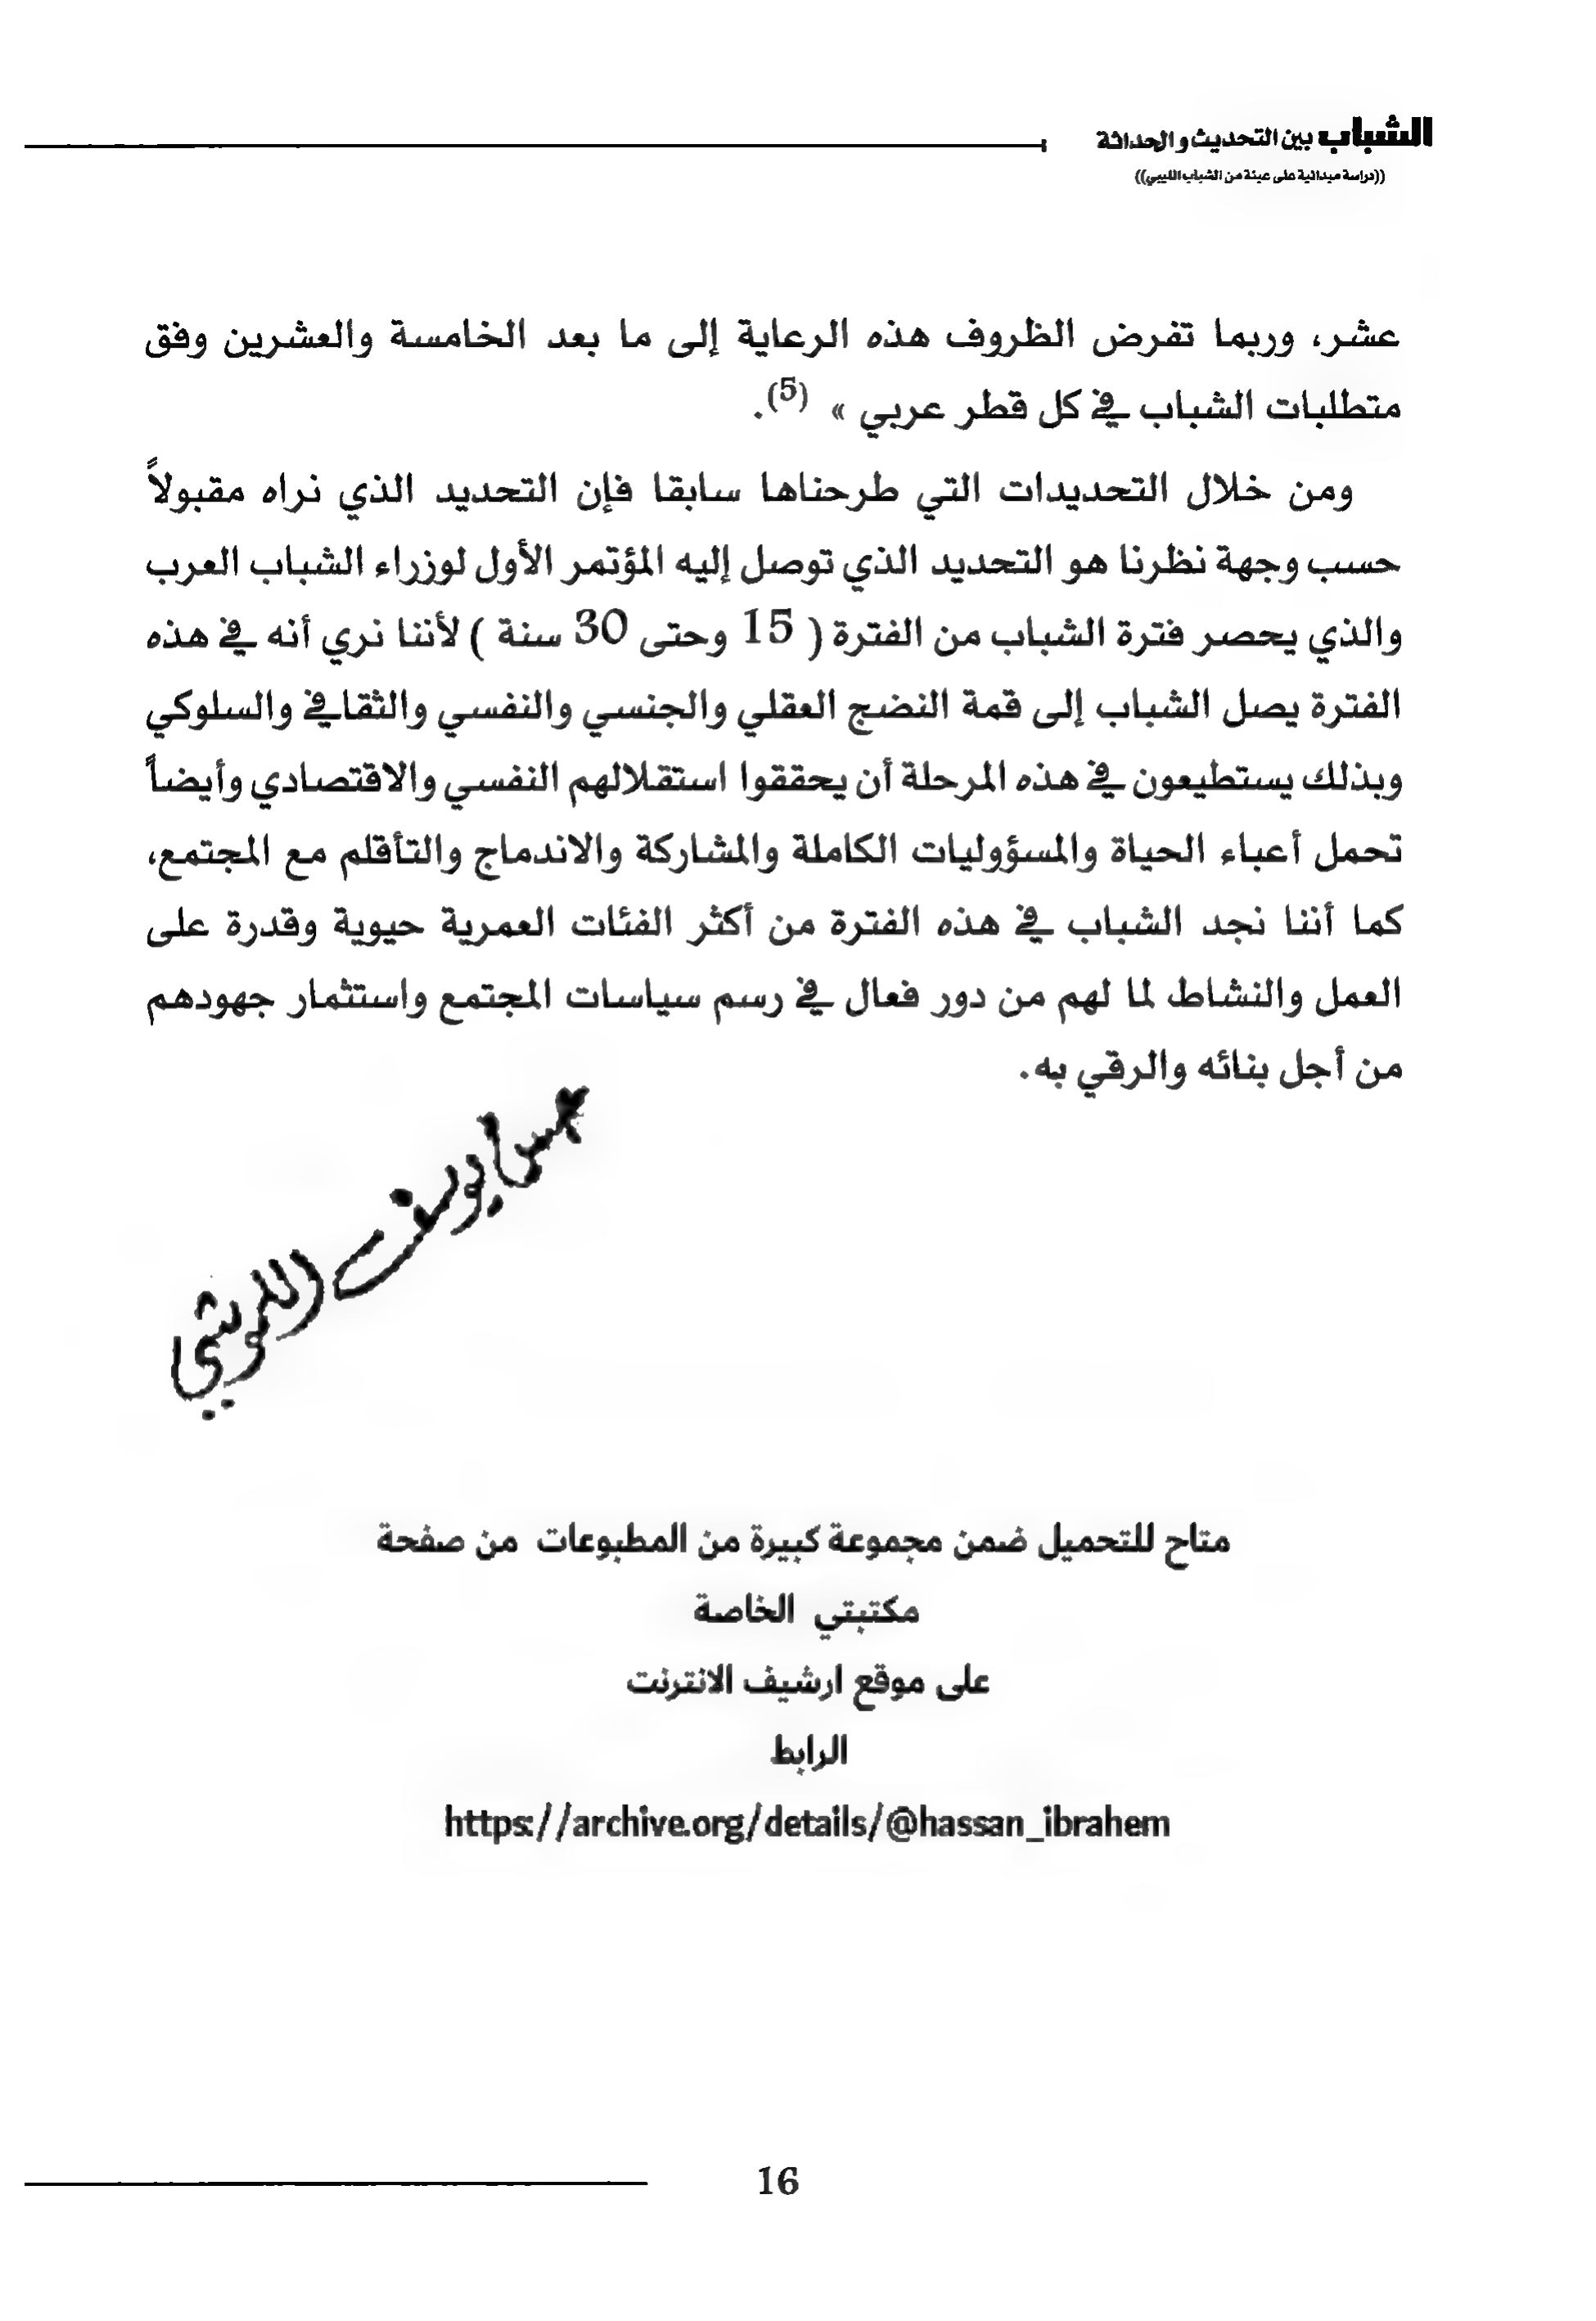 الشباب بين التحديث والحداثة
((دراسة ميدانية على عينة من الشباب الليبي))
عشر، وربما تفرض الظروف هذه الرعاية إلى ما بعد الخامسة والعشرين وفق
متطلبات الشباب في كل قطر عربي » (5).
ومن خلال التحديدات التي طرحناها سابقا فإن التحديد الذي نراه مقبولاً
حسب وجهة نظرنا هو التحديد الذي توصل إليه المؤتمر الأول لوزراء الشباب العرب
والذي يحصر فترة الشباب من الفترة ( 15 وحتى 30 سنة ) لأننا نري أنه في هذه
الفترة يصل الشباب إلى قمة النضج العقلي والجنسي والنفسي والثقافي والسلوكي
وبذلك يستطيعون في هذه المرحلة أن يحققوا استقلالهم النفسي والاقتصادي وأيضاً
تحمل أعباء الحياة والمسؤوليات الكاملة والمشاركة والاندماج والتأقلم مع المجتمع،
كما أننا نجد الشباب في هذه الفترة من أكثر الفئات العمرية حيوية وقدرة على
العمل والنشاط لما لهم من دور فعال في رسم سياسات المجتمع واستثمار جهودهم
من أجل بنائه والرقي به.
يوسف
متاح للتحميل ضمن مجموعة كبيرة من المطبوعات من صفحة
مكتبتي الخاصة
على موقع ارشيف الانترنت
الرابط
https://archive.org/details/@hassan_ibrahem
16